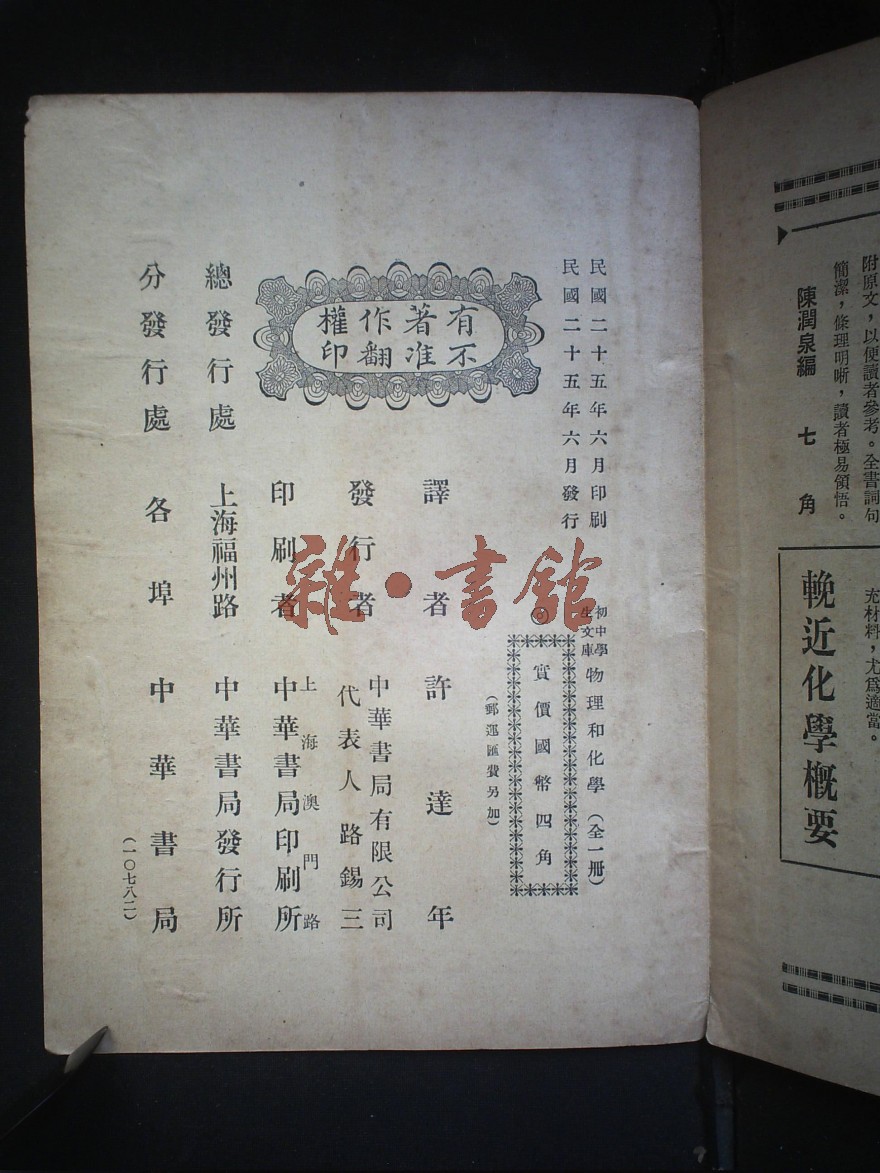 民國二十五年六月印刷
民國二十五年六月發行
初中學生文庫 物理和化學(全一冊)
◎實價國幣四角
(郵運匯費另加)
有著作權
不准翻印
譯者 許達年
發行者 中華書局有限公司
代表人 路錫三
印刷者 上海澳門路
中華書局印刷所
總發行處 上海福州路 中華書局發行所
分發行處 各埠 中華書局
(一〇七八二)
雜·書館
附原文,以便讀者參考。全書詞句
簡潔,條理明晰,讀者極易領悟。
陳潤泉編 七角
充材料,尤爲適當。
輓近化學概要